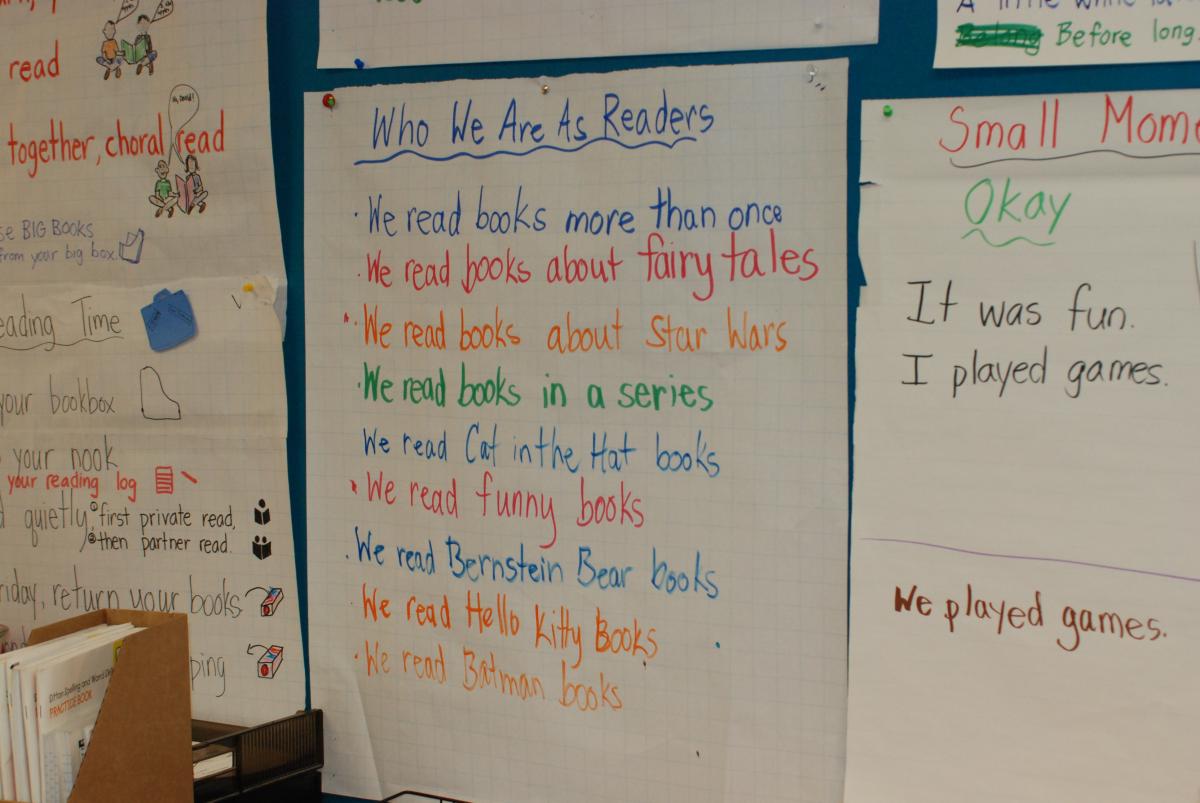 read
together, choral read
se BIG BOOKS
from your big box.
eading Time
your bookbox
your nook
your reading log
quietly,
first private read,
then partner read.
riday, return your books
ping
PRACTICE BOOK
Who We Are As Readers
· We read books more than once
· We read books about fairy tales
· We read books about Star Wars
· We read books in a series
We read Cat in the Hat books
· We read funny books
· We read Bernstein Bear books
· We read Hello Kitty Books
· We read Batman books
Before long.
Small Mome
Okay
It was fun.
I played games.
We played games.